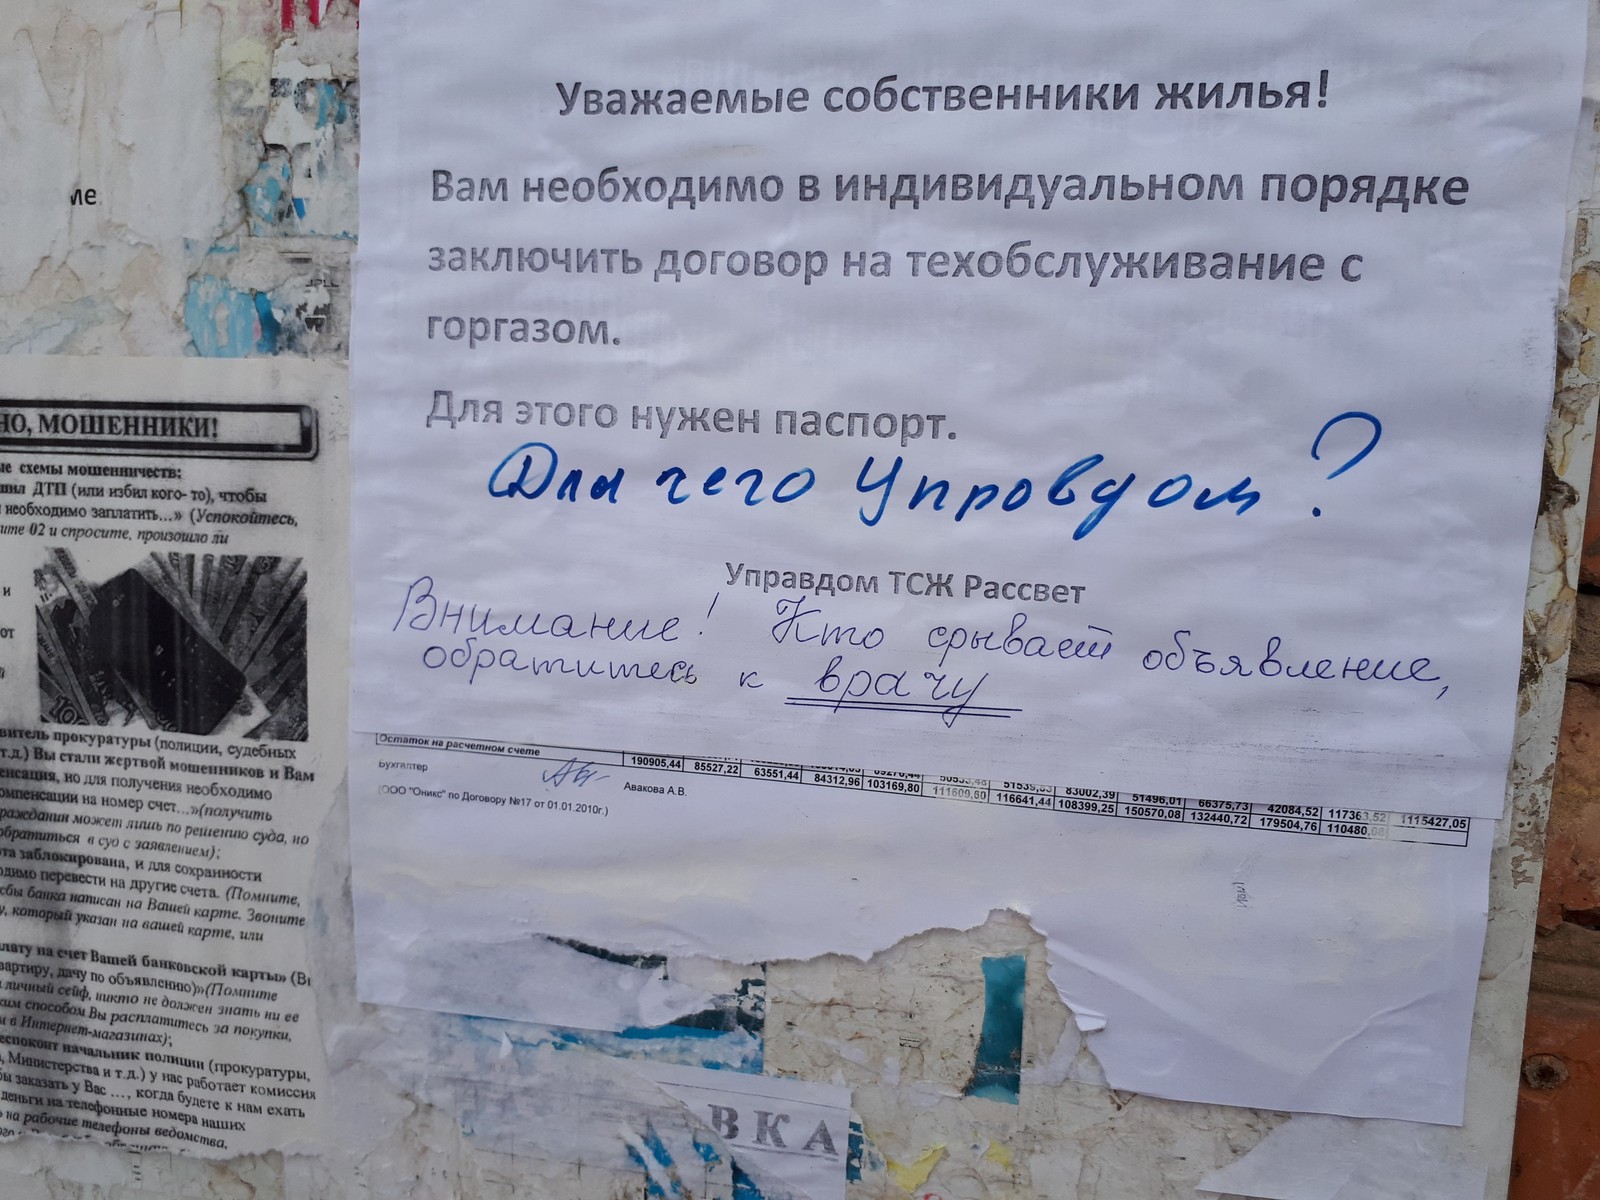 Уважаемые собственники жилья!
Вам необходимо в индивидуальном порядке
заключить договор на техобслуживание с
горгазом.
Для этого нужен паспорт.
Для чего Упровдом?
Управдом ТСЖ Рассвет
Внимание! Кто срывает объявление,
обратитесь к врачу
51539,63 83002,39 51496,01 66375,73 42084,52 117363,52 1115427,05
Остаток на расчетном счете 190905,44 85527,22 63551,44 84312,96 103169,80 111609,60 116641,44 108399,25 150570,08 132440,72 179504,76 110480,08
Бухгалтер Авакова А.В.
(ООО "Оникс" по Договору №17 от 01.01.2010г.)
ВКА
ме
НО, МОШЕННИКИ!
ые схемы мошенничеств:
шил ДТП (или избил кого- то), чтобы
необходимо заплатить...» (Успокойтесь,
ите 02 и спросите, произошло ли
и
от
витель прокуратуры (полиции, судебных
т.д.) Вы стали жертвой мошенников и Вам
енсация, но для получения необходимо
омпенсации на номер счет...»(получить
гражданин может лишь по решению суда, но
обратиться в суд с заявлением);
та заблокирована, и для сохранности
одимо перевести на другие счета. (Помните,
бы банка написан на Вашей карте. Звоните
у, который указан на вашей карте, или
лату на счет Вашей банковской карты» (В
вартиру, дачу по объявлению)»(Помните
личный сейф, никто не должен знать ни ее
ким способом Вы расплатитесь за покупки,
м в Интернет-магазинах);
еспокоит начальник полиции (прокуратуры,
, Министерства и т.д.) у нас работает комиссия
бы заказать у Вас ..., когда будете к нам ехать
деньги на телефонные номера наших
на рабочие телефоны ведомства,